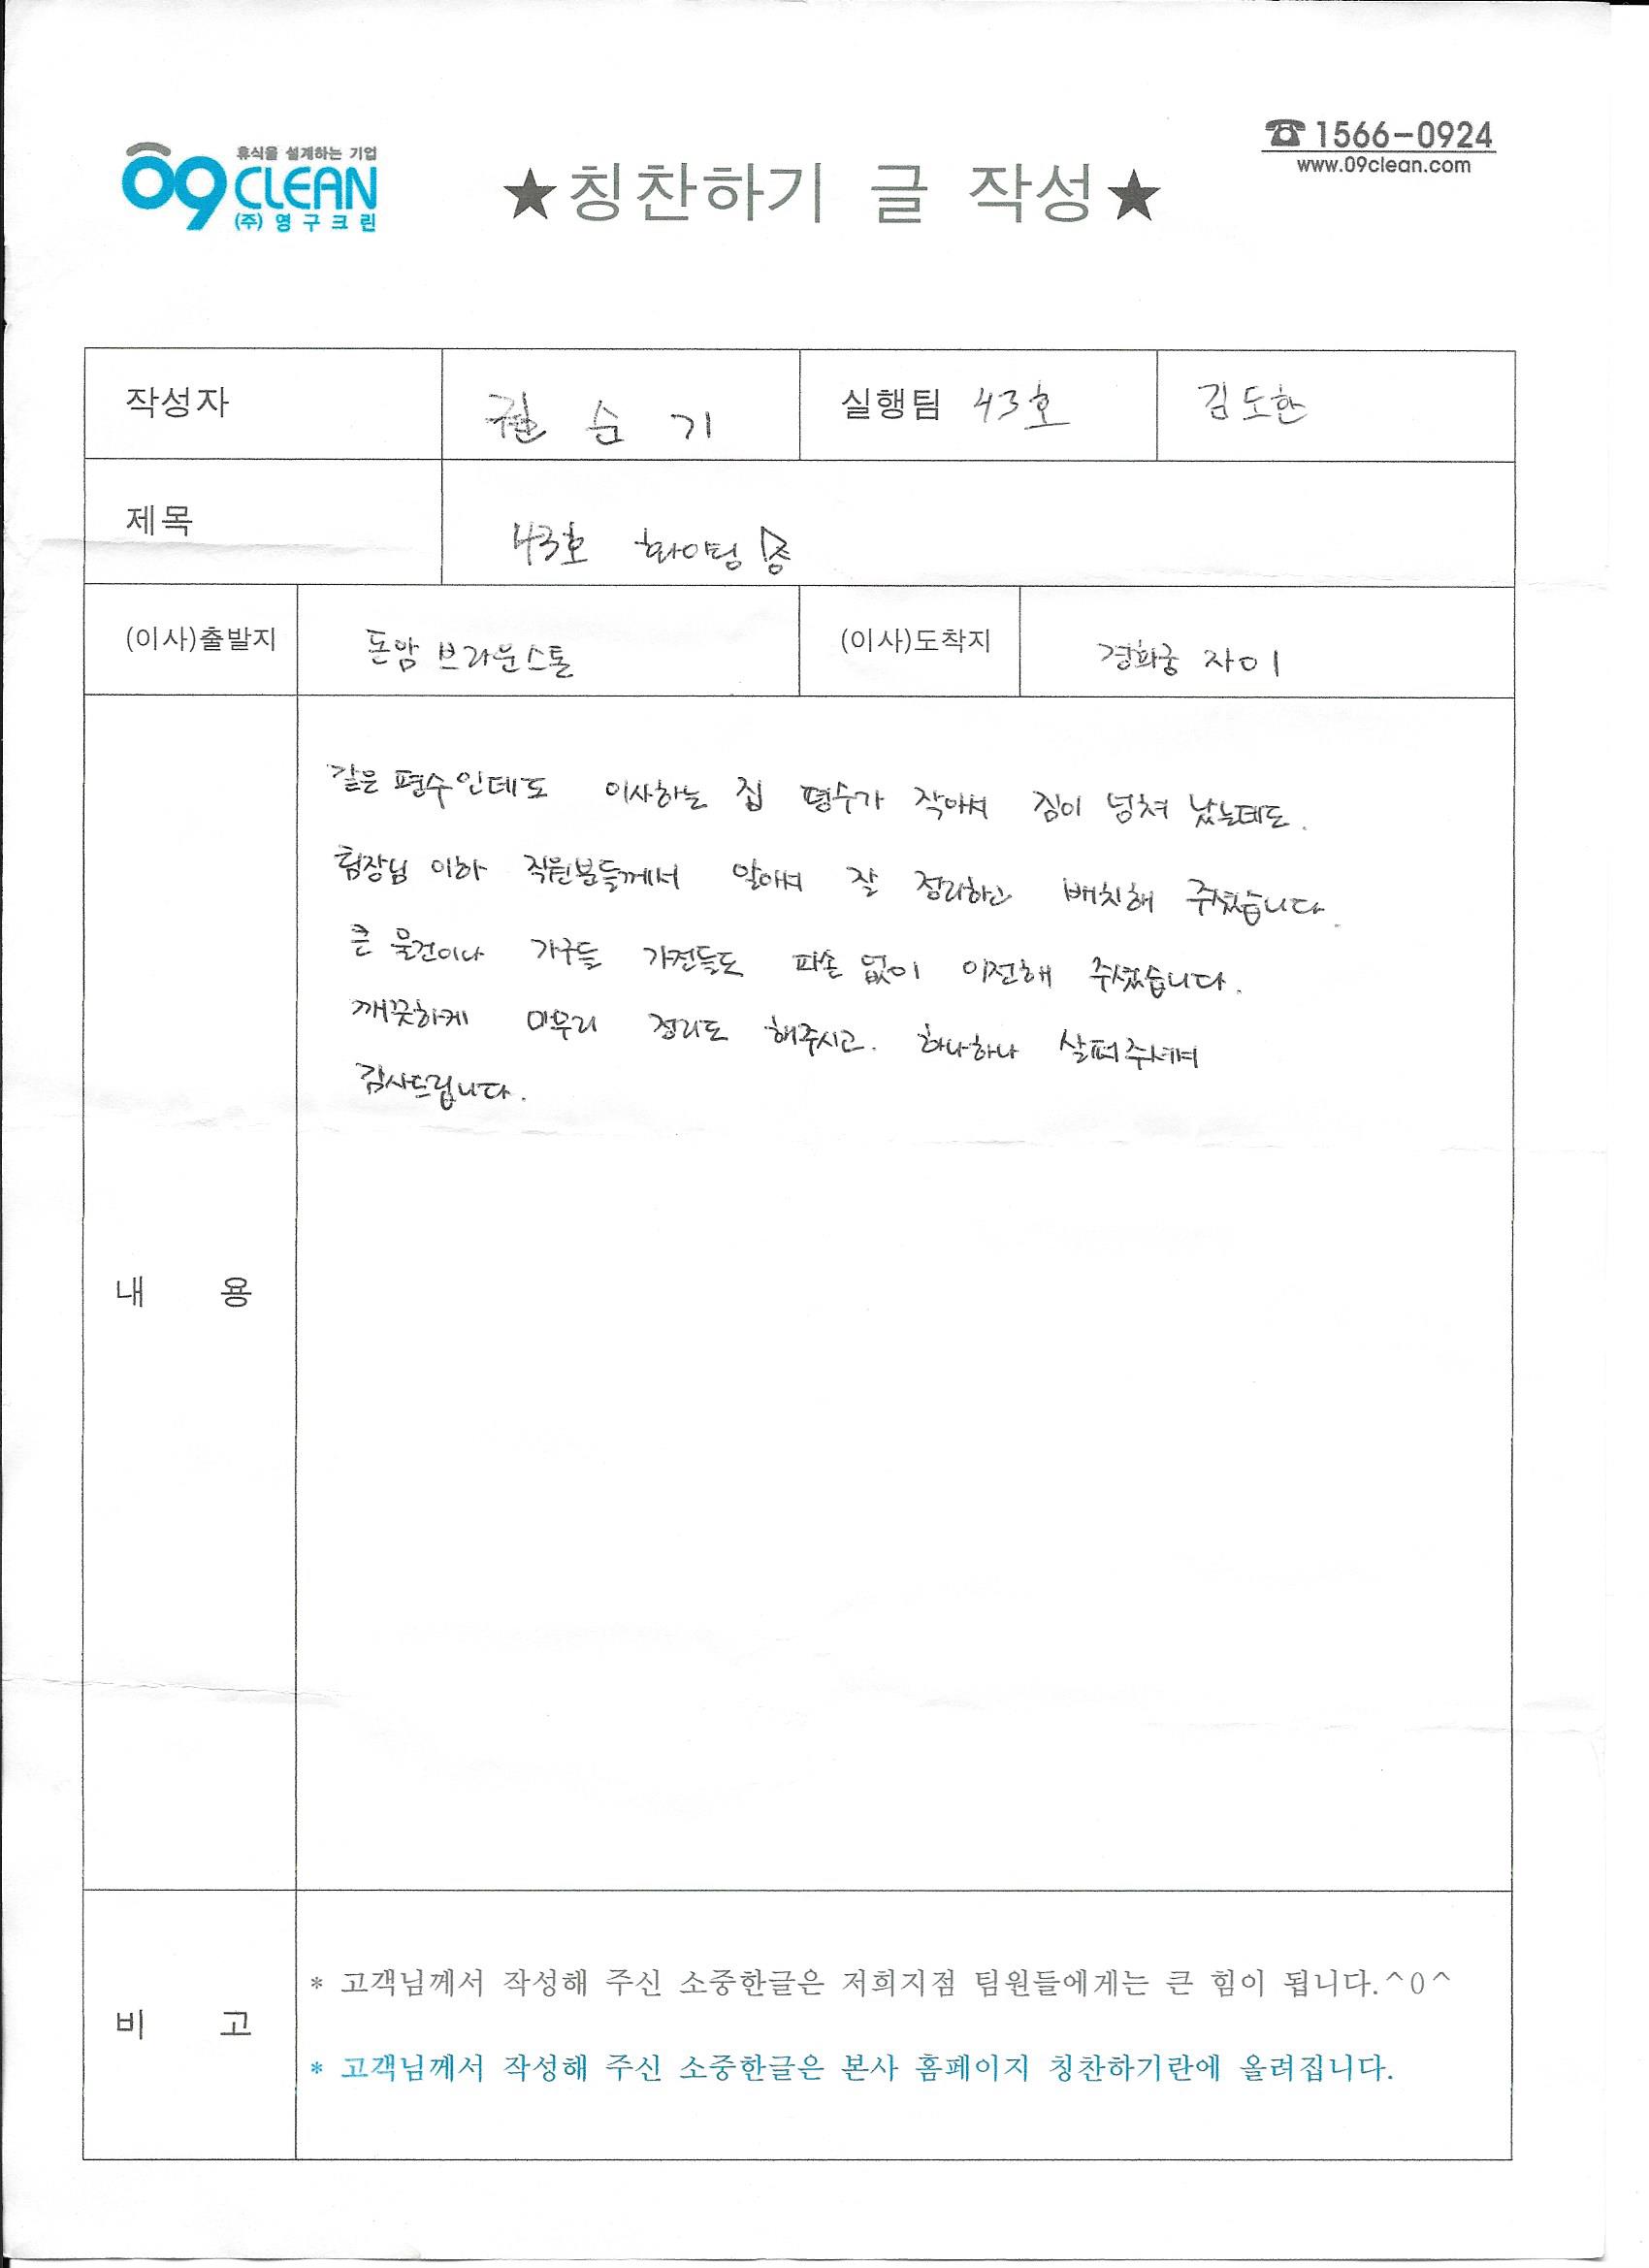 휴식을 설계하는 기업
09 CLEAN
(주)영구크린
★칭찬하기 글 작성★
☎1566-0924
www.09clean.com
작성자 권순기 실행팀 43호 김도한
제목 43호 화이팅
(이사)출발지 돈암 브라운스톤 (이사)도착지 경희궁 자이
같은 평수인데도 이사하는 집 평수가 작아서 짐이 넘쳐 났는데도.
팀장님 이하 직원분들께서 알아서 잘 정리하고 배치해 주셨습니다.
큰 물건이나 가구들 가전들도 파손 없이 이전해 주셨습니다.
깨끗하게 마무리 정리도 해주시고. 하나하나 살펴주셔서
감사드립니다.
내 용
비 고
* 고객님께서 작성해 주신 소중한글은 저희지점 팀원들에게는 큰 힘이 됩니다.^0^
* 고객님께서 작성해 주신 소중한글은 본사 홈페이지 칭찬하기란에 올려집니다.